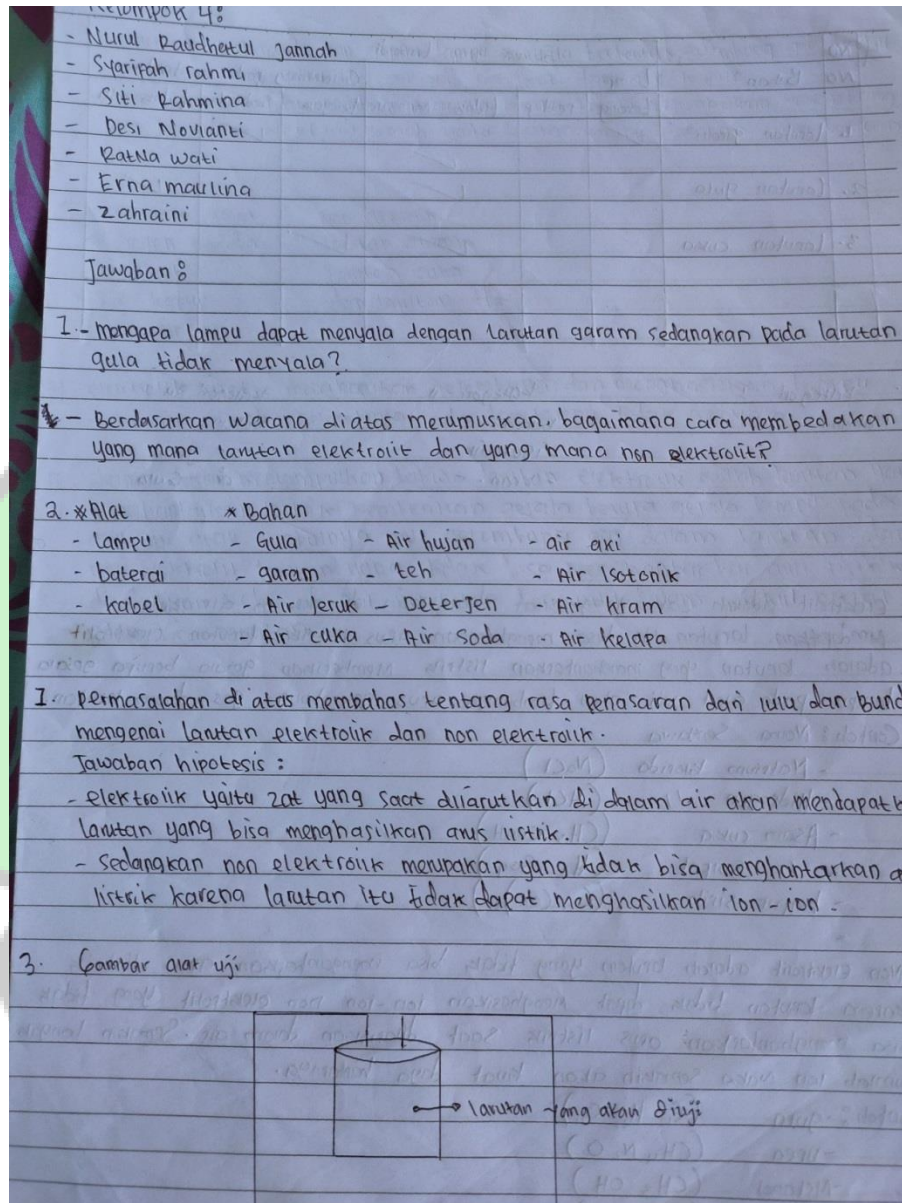 Kelompok 4:
- Nurul Raudhatul Jannah
- Syarifah rahmi
- Siti Rahmina
- Desi Novianti
- RatNa wati
- Erna maulina
- Zahraini
Jawaban:
1. - mengapa lampu dapat menyala dengan larutan garam sedangkan pada larutan
gula tidak menyala?
- Berdasarkan wacana diatas merumuskan, bagaimana cara membedakan
yang mana larutan elektrolit dan yang mana non elektrolit?
2. *Alat * Bahan
- lampu - Gula - Air hujan - air aki
- baterai - garam - teh - Air Isotonik
- kabel - Air Jeruk - Deterjen - Air kram
- Air cuka - Air Soda - Air Kelapa
I. permasalahan di atas membahas tentang rasa penasaran dari lulu dan Bund
mengenai larutan elektrolik dan non elektrolik.
Jawaban hipotesis :
- elektrolik yaitu zat yang saat dilarutkan di dalam air akan mendapatk
larutan yang bisa menghasilkan arus listrik.
- Sedangkan non elektrolik merupakan yang tidak bisa menghantarkan a
listrik karena larutan itu tidak dapat menghasilkan ion-ion.
3. Gambar alat uji
larutan yang akan diuji